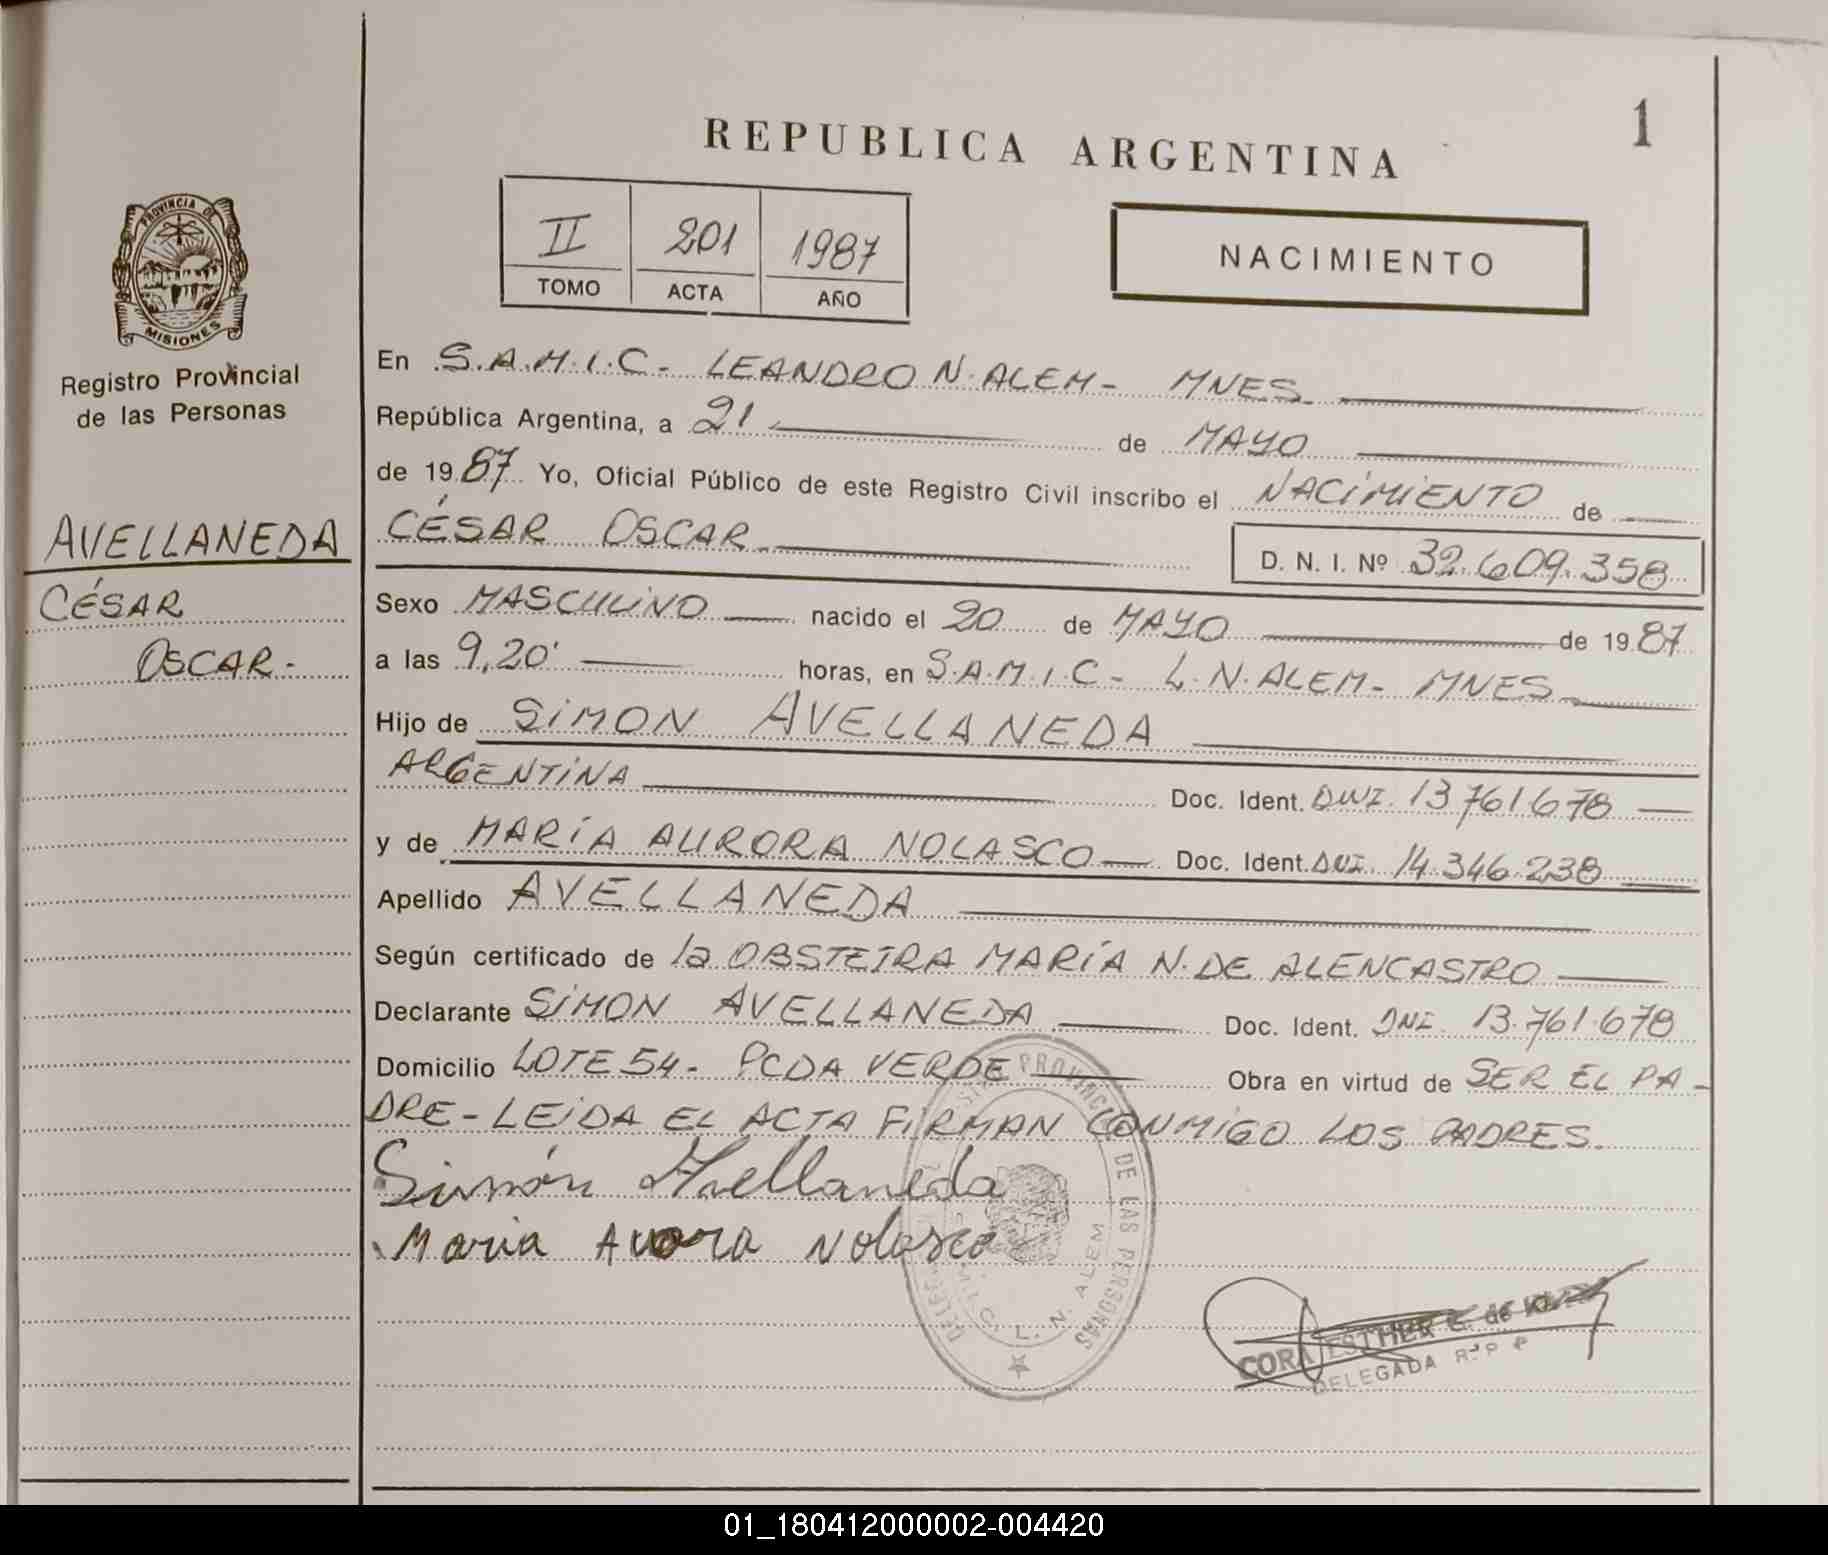 1
REPUBLICA ARGENTINA
II 201 1987
TOMO ACTA AÑO
NACIMIENTO
PROVINCIA DE
MISIONES
Registro Provincial
de las Personas
AVELLANEDA
CÉSAR
OSCAR.-
En S.A.M.I.C- LEANDRO N. ALEM- MNES
República Argentina, a 21 de MAYO
de 1987. Yo, Oficial Público de este Registro Civil inscribo el NACIMIENTO de
CÉSAR OSCAR
D. N. I. Nº 32.609.358
Sexo MASCULINO nacido el 20 de MAYO de 1987
a las 9,20' horas, en S.A.M.I.C- L.N. ALEM- MNES
Hijo de SIMON AVELLANEDA
ARGENTINA Doc. Ident. DNI. 13.761.678
y de MARÍA AURORA NOLASCO Doc. Ident. DNI. 14.346.238
Apellido AVELLANEDA
Según certificado de la OBSTETRA MARÍA N. DE ALENCASTRO
Declarante SIMON AVELLANEDA Doc. Ident. DNI 13.761.678
Domicilio LOTE 54- PCDA VERDE Obra en virtud de SER EL PA-
DRE- LEIDA EL ACTA FIRMAN CONMIGO LOS PADRES.
Simón Avellaneda
Maria Auora Nolasco
PROVINCIAL DE LAS PERSONAS
L. N. ALEM
CORA ESTHER C. de
DELEGADA R.P.P
01_180412000002-004420